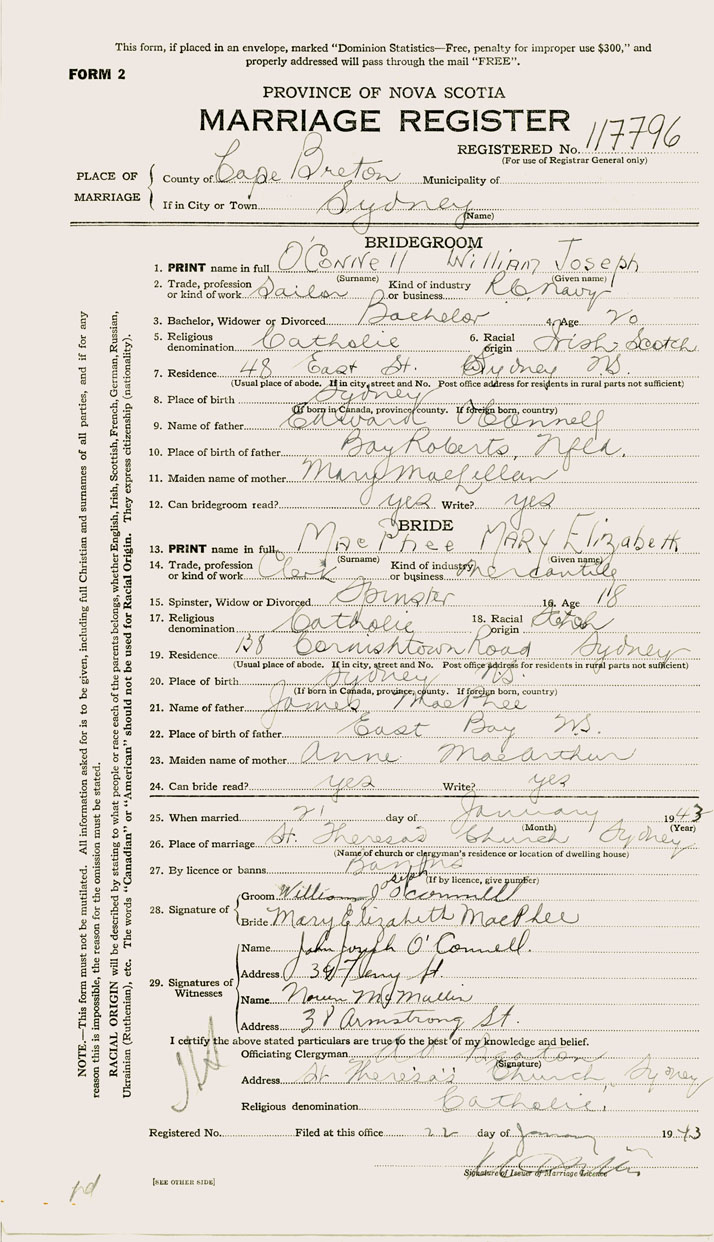 This form, if placed in an envelope, marked "Dominion Statistics—Free, penalty for improper use $300," and
properly addressed will pass through the mail "FREE".
FORM 2
PROVINCE OF NOVA SCOTIA
MARRIAGE REGISTER
REGISTERED No. 117796
(For use of Registrar General only)
PLACE OF MARRIAGE
County of Cape Breton Municipality of
If in City or Town Sydney
(Name)
BRIDEGROOM
1. PRINT name in full O'Connell William Joseph
(Surname) (Given name)
2. Trade, profession or kind of work Sailor Kind of industry or business R.C. Navy
3. Bachelor, Widower or Divorced Bachelor 4. Age 20
5. Religious denomination Catholic 6. Racial origin Irish-Scotch
7. Residence 48 East St. Sydney N.S.
(Usual place of abode. If in city, street and No. Post office address for residents in rural parts not sufficient)
8. Place of birth Sydney
(If born in Canada, province, county. If foreign born, country)
9. Name of father Edward O'Connell
10. Place of birth of father Bay Roberts, Nfld.
11. Maiden name of mother Mary MacLellan
12. Can bridegroom read? yes Write? yes
BRIDE
13. PRINT name in full MacPhee MARY Elizabeth
(Surname) (Given name)
14. Trade, profession or kind of work Clerk Kind of industry or business Mercantile
15. Spinster, Widow or Divorced Spinster 16. Age 18
17. Religious denomination Catholic 18. Racial origin Scotch
19. Residence 138 Cornishtown Road Sydney
(Usual place of abode. If in city, street and No. Post office address for residents in rural parts not sufficient)
20. Place of birth Sydney N.S.
(If born in Canada, province, county. If foreign born, country)
21. Name of father James MacPhee
22. Place of birth of father East Bay N.S.
23. Maiden name of mother Anne MacArthur
24. Can bride read? yes Write? yes
25. When married 21 day of January 1943
(Month) (Year)
26. Place of marriage St. Theresa's Church Sydney
(Name of church or clergyman's residence or location of dwelling house)
27. By licence or banns Banns
(If by licence, give number)
28. Signature of
Groom William Joseph O'Connell
Bride Mary Elizabeth MacPhee
29. Signatures of Witnesses
Name John Joseph O'Connell.
Address Ferry St.
Name McMullin
Address 38 Armstrong St.
I certify the above stated particulars are true to the best of my knowledge and belief.
Officiating Clergyman
(Signature)
Address St Theresa's Church, Sydney
Religious denomination Catholic.
Registered No. Filed at this office 22 day of January 1943
Signature of Issuer of Marriage Licence
[SEE OTHER SIDE]
NOTE.—This form must not be mutilated. All information asked for is to be given, including full Christian and surnames of all parties, and if for any
reason this is impossible, the reason for the omission must be stated.
RACIAL ORIGIN will be described by stating to what people or race each of the parents belongs, whether English, Irish, Scottish, French, German, Russian,
Ukrainian (Ruthenian), etc. The words "Canadian" or "American" should not be used for Racial Origin. They express citizenship (nationality).